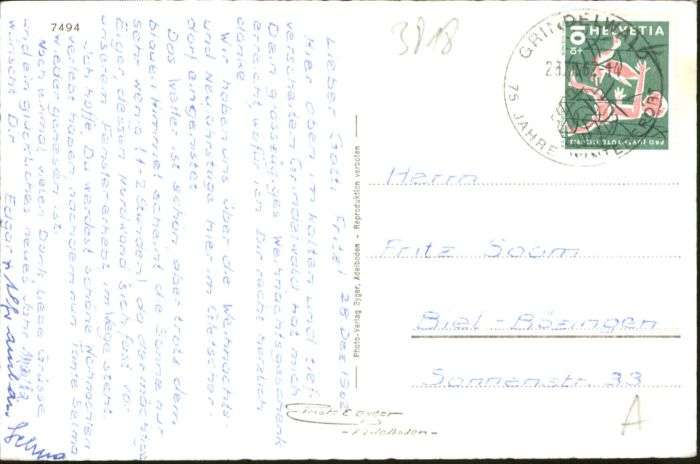 7494
3818
GRINDELWALD
75 JAHRE WINTER
HELVETIA
10
PRO JUVENTUTE
Lieber Götti Fritz! 28 Dez 1962
Hier oben im kalten und tief
verschneiten Grindelwald hat mich
Dein grosszügiges Weihnachtsgeschenk
erreicht wofür ich Dir recht herzlich
danke
Wir haben uns über die Weihnachts-
und Neujahrstage hier im Gletscher-
dorf eingenistet
Das Wetter ist schön aber trotz dem
blauen Himmel scheint die Sonne nur
sehr wenig (1-2 Stunden) da der mächtige
Eiger dessen Nordwand sich fast vor
unserem Fenster erhebt im Wege steht.
Ich hoffe, Du werdest schöne Weihnachten
verlebt haben nachdem nun Tante Selma
wieder genesen ist.
Noch einmal vielen Dank liebe Grüsse
und ein glückliches neues Jahr
wünscht Dir Edgar
Photo-Verlag Gyger, Adelboden - Reproduktion verboten
Herrn
Fritz
Biel-Bözingen
Sonnenstr. 33
Gyger
Adelboden
A